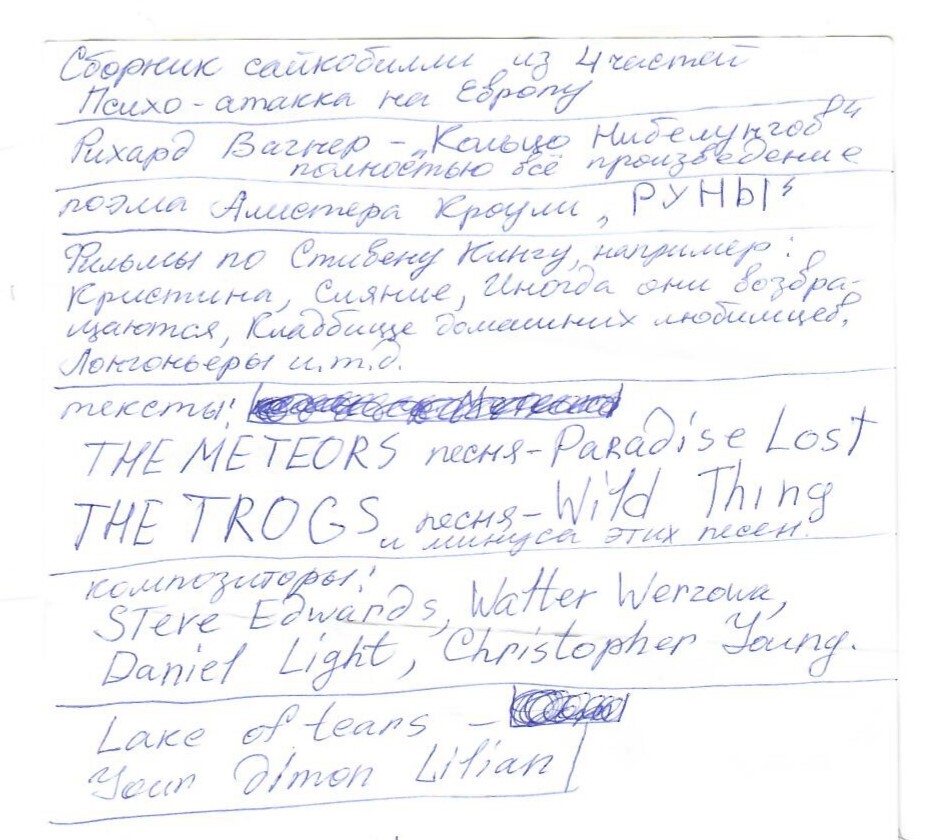 Сборник сайкобилли из 4 частей
Психо-атакка на Европу
Рихард Вагнер - „Кольцо Нибелунгов"
полностью всё произведение
поэма Алистера Кроули „РУНЫ"
Фильмы по Стивену Кингу, например:
Кристина, Сияние, Иногда они возвра-
щаются, Кладбище домашних любимцев,
Лонгоньеры и.т.д.
тексты:
THE METEORS песня-Paradise Lost
THE TROGS песня-Wild Thing
и минуса этих песен.
композиторы:
Steve Edwards, Walter Werzowa,
Daniel Light, Christopher Young.
Lake of tears -
Your dimon Lilian